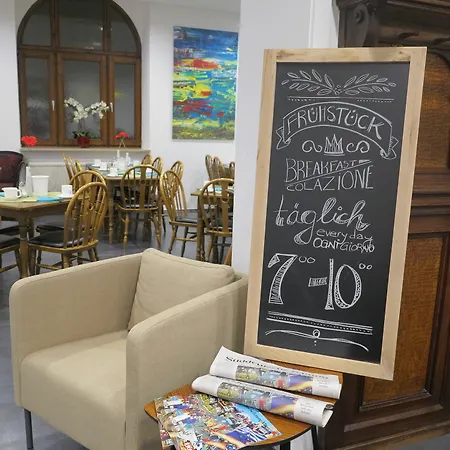 FRÜHSTÜCK
BREAKFAST
COLAZIONE
täglich
everyday
OGNI GIORNO
7⁰⁰-10⁰⁰